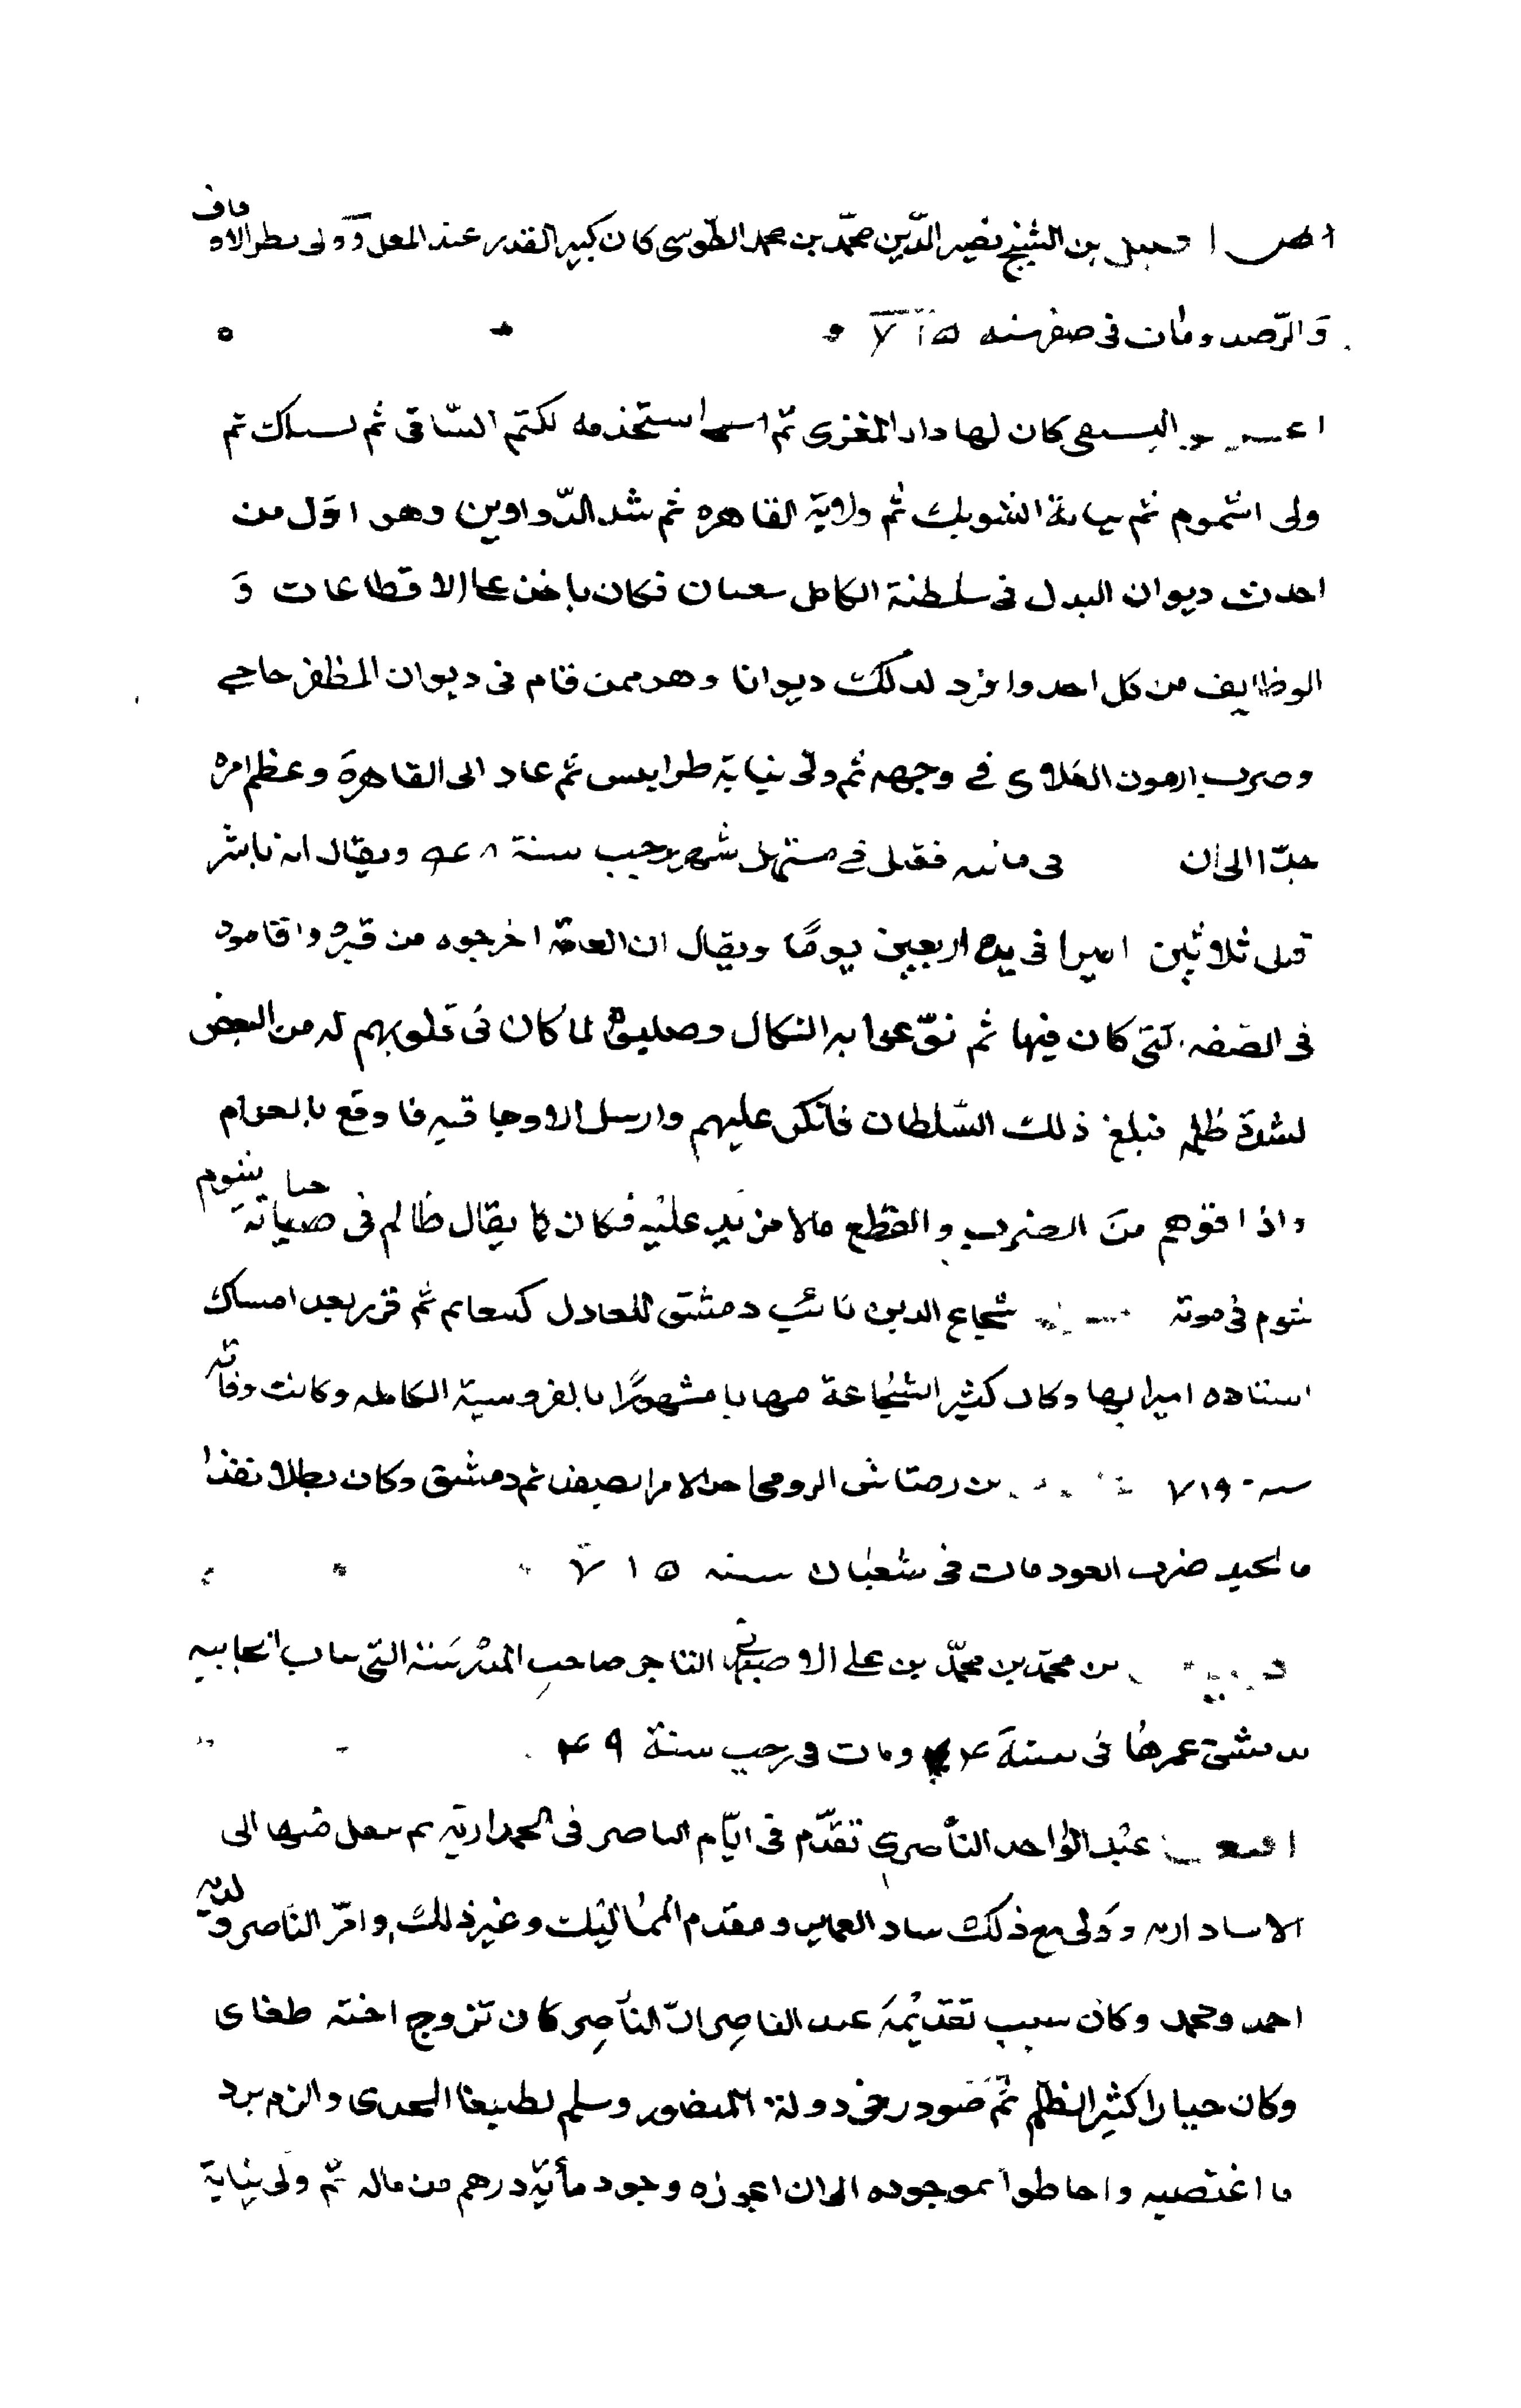 بن الشيخ نصير الدّين محمّد بن محمد الطّوسى كان كبير القدر عند المعل وَولى نطر الاوقاف
وَالرّصد ومات فى صفر سنه ٧١٥
كان لها داد المغزى ثمّ استخدمه لكتم السّاقى ثم ثم
ولى اشموم ثم نيابة الشوبك ثم ولاية القاهره ثم شد الدّواوين وهو اوّل من
احدث ديوان البدل فى سلطنة الكامل سعبان فكان ياخذ على الاقطاعات وَ
الوظايف من كل احد وافرد لذلك ديوانا وهو ممن قام فى ديوان المظفر حاجى
وضرب ارعون العلاوى في وجهه ثم ولى نيابة طرابلس ثم عاد الى القاهرة وعظم امره
جدّا الى ان فقتل في مستهل شهر رجب سنة ويقال انه باشر
قتل ثلاثين اميرا فى مدة اربعين يومًا ويقال ان العامّة اخرجوه من قبره واقاموه
فى الصّفه التى كان فيها ثم نوّعوا به النكال وصلبوه لما كان فى قلوبهم له من البغض
لشدة ظلمه فبلغ ذلك السّلطان فانكر عليهم وارسل الاوجاقيه فاوقع بالعوام
واذاقوهم من الضرب والقطع مالا مزيد عليه فكان كما يقال ظالم فى حياته شوم
شوم فى موته شجاع الدين نائب دمشق للعادل ثم قرر بعد امساك
استاده اميرا بها وكان كثير الشّجاعة مهابا مشهورًا بالفروسية الكامله وكانت وفاته
سنة ٧١٩ الرومى احد الامرا بصفد ثم دمشق وكان بطلا نفذا
ضرب العود مات فى شعبان سنه ٧١٥
بن محمّد بن محمّد بن على الاصبهانى التاجر صاحب المدرسة التى بباب الجابيه
بدمشق عمرها فى سنة ومات فى رجب سنة
عبد الواحد الناصرى تقدّم فى ايّام الناصر فى الجمدارية ثم نقل منها الى
الاستادارىه وَولى مع ذلك شاد العماير ومقدم المماليك وغير ذلك وامّر الناصر ولديه
احمد ومحمد وكان سبب تقديمه عند الناصر انّ الناصر كان تزوج اخته طغاى
وكان جبارا كثير الظلم ثمّ صودر فى دولة المنصور وسلم لطيبغا المجدى والزم برد
ما اغتصبه واحاطوا بموجوده الى ان اعوزه وجود مأية درهم من ماله ثمّ ولى نيابة